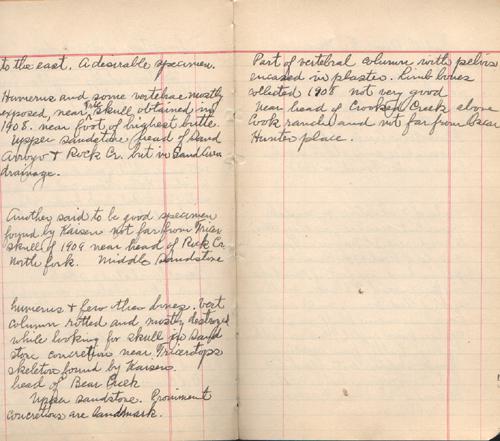 to the east. A desirable specimen.
Humerus and some vertebrae mostly
exposed, near Tric skull obtained in
1908. near foot of highest butte.
Upper sandstone, head of Sand
Arroyo & Rock Cr. but in Sand
drainage.
Another said to be good specimen
found by Kaisen not far from Tricer
skull of 1909 near head of Rock Cr
North fork. Middle Sandstone
humerus & few other bones. Vert
column rotted and mostly destroyed
while looking for skull in Sand
stone concretion near Triceratops
skeleton found by Kaisen.
head of Bear Creek
Upper sandstone. Prominent
concretions are landmark.
Part of vertebral column with pelvis
encased in plaster. Limb bones
collected 1908 not very good
Near head of Crooked Creek above
Cook ranch and not far from Oscar
Hunter place.